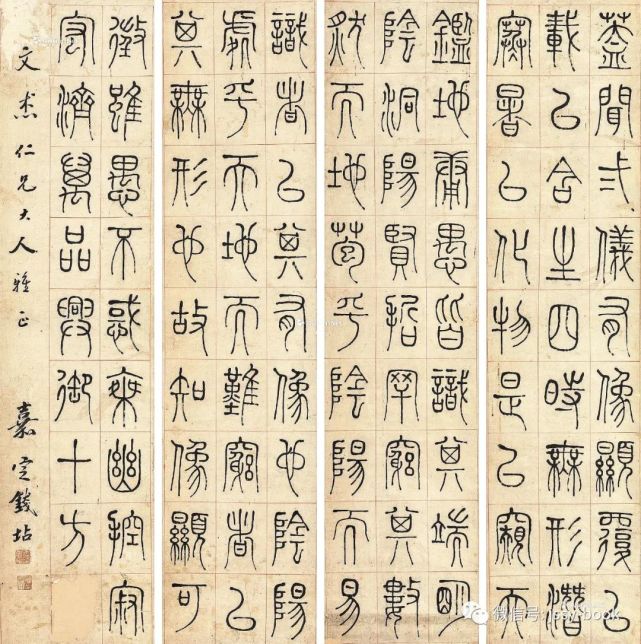 蓋聞弍儀有像顯覆㠯
載㠯含生四時無形潛
寒暑㠯化物是㠯窺天
鑑地庸愚皆識其端明
陰洞陽賢哲罕窮其數
然天地苞乎陰陽而易
識者㠯其有像也陰陽
處乎天地而難窮者㠯
其無形也故知像顯可
徵雖愚不惑乘幽控寂
宏濟萬品興御十方
文杰仁兄大人雅正
嘉定錢坫